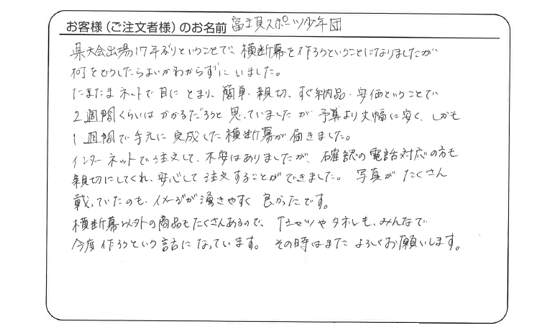 お客様（ご注文者様）のお名前 富士見スポーツ少年団
県大会出場17年ぶりということで、横断幕を作ろうということになりましたが
何をどうしたらよいかわからずにいました。
たまたまネットで目にとまり、簡単・親切、すぐ納品・安価ということで
2週間くらいはかかるだろうと思っていましたが予算より大幅に安く、しかも
1週間で手元に完成した横断幕が届きました。
インターネットでの注文して、不安はありましたが、確認の電話対応の方も
親切にしてくれ、安心して注文することができました。写真がたくさん
載っていたのも、イメージが湧きやすく良かったです。
横断幕以外の商品もたくさんあるので、Tシャツやタオルも、みんなで
今度作ろうという話になっています。その時はまたよろしくお願いします。